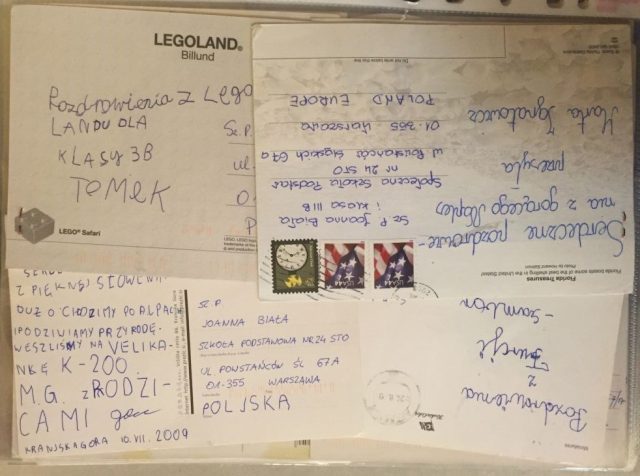 LEGOLAND®
Billund
Pozdrowienia z Lego
LANDU DLA
KLASY 3B
TOMEK
Sz. P.
ul.
LEGO® Safari
Do not write below this line
Serdeczne pozdrowie-
nia z gorącego Naples
przesyła
Marta Ignatowicz
Sz. P. Joanna Biała
i klasa III B
Społeczna Szkoła Podstaw
nr 24 STO
ul. Powstańców Śląskich 67a
01-355 Warszawa
POLAND EUROPE
Florida Treasures
Photo by Howard Salmon
USA
USA 44
USA 44
Z PIĘKNEJ SŁOWENII
DUŻO CHODZIMY PO ALPAC
I PODZIWIAMY PRZYRODĘ.
WESZLIŚMY NA VELIKA-
NKĘ K-200.
M.G. z RODZI-
CAMI
KRANJSKA GORA 10.VII. 2009
SZ.P
JOANNA BIAŁA
SZKOŁA PODSTAWOWA NR 24 STO
UL POWSTAŃCÓW ŚL 67A
01-355 WARSZAWA
POLJSKA
Pozdrowienia
z
Turcji